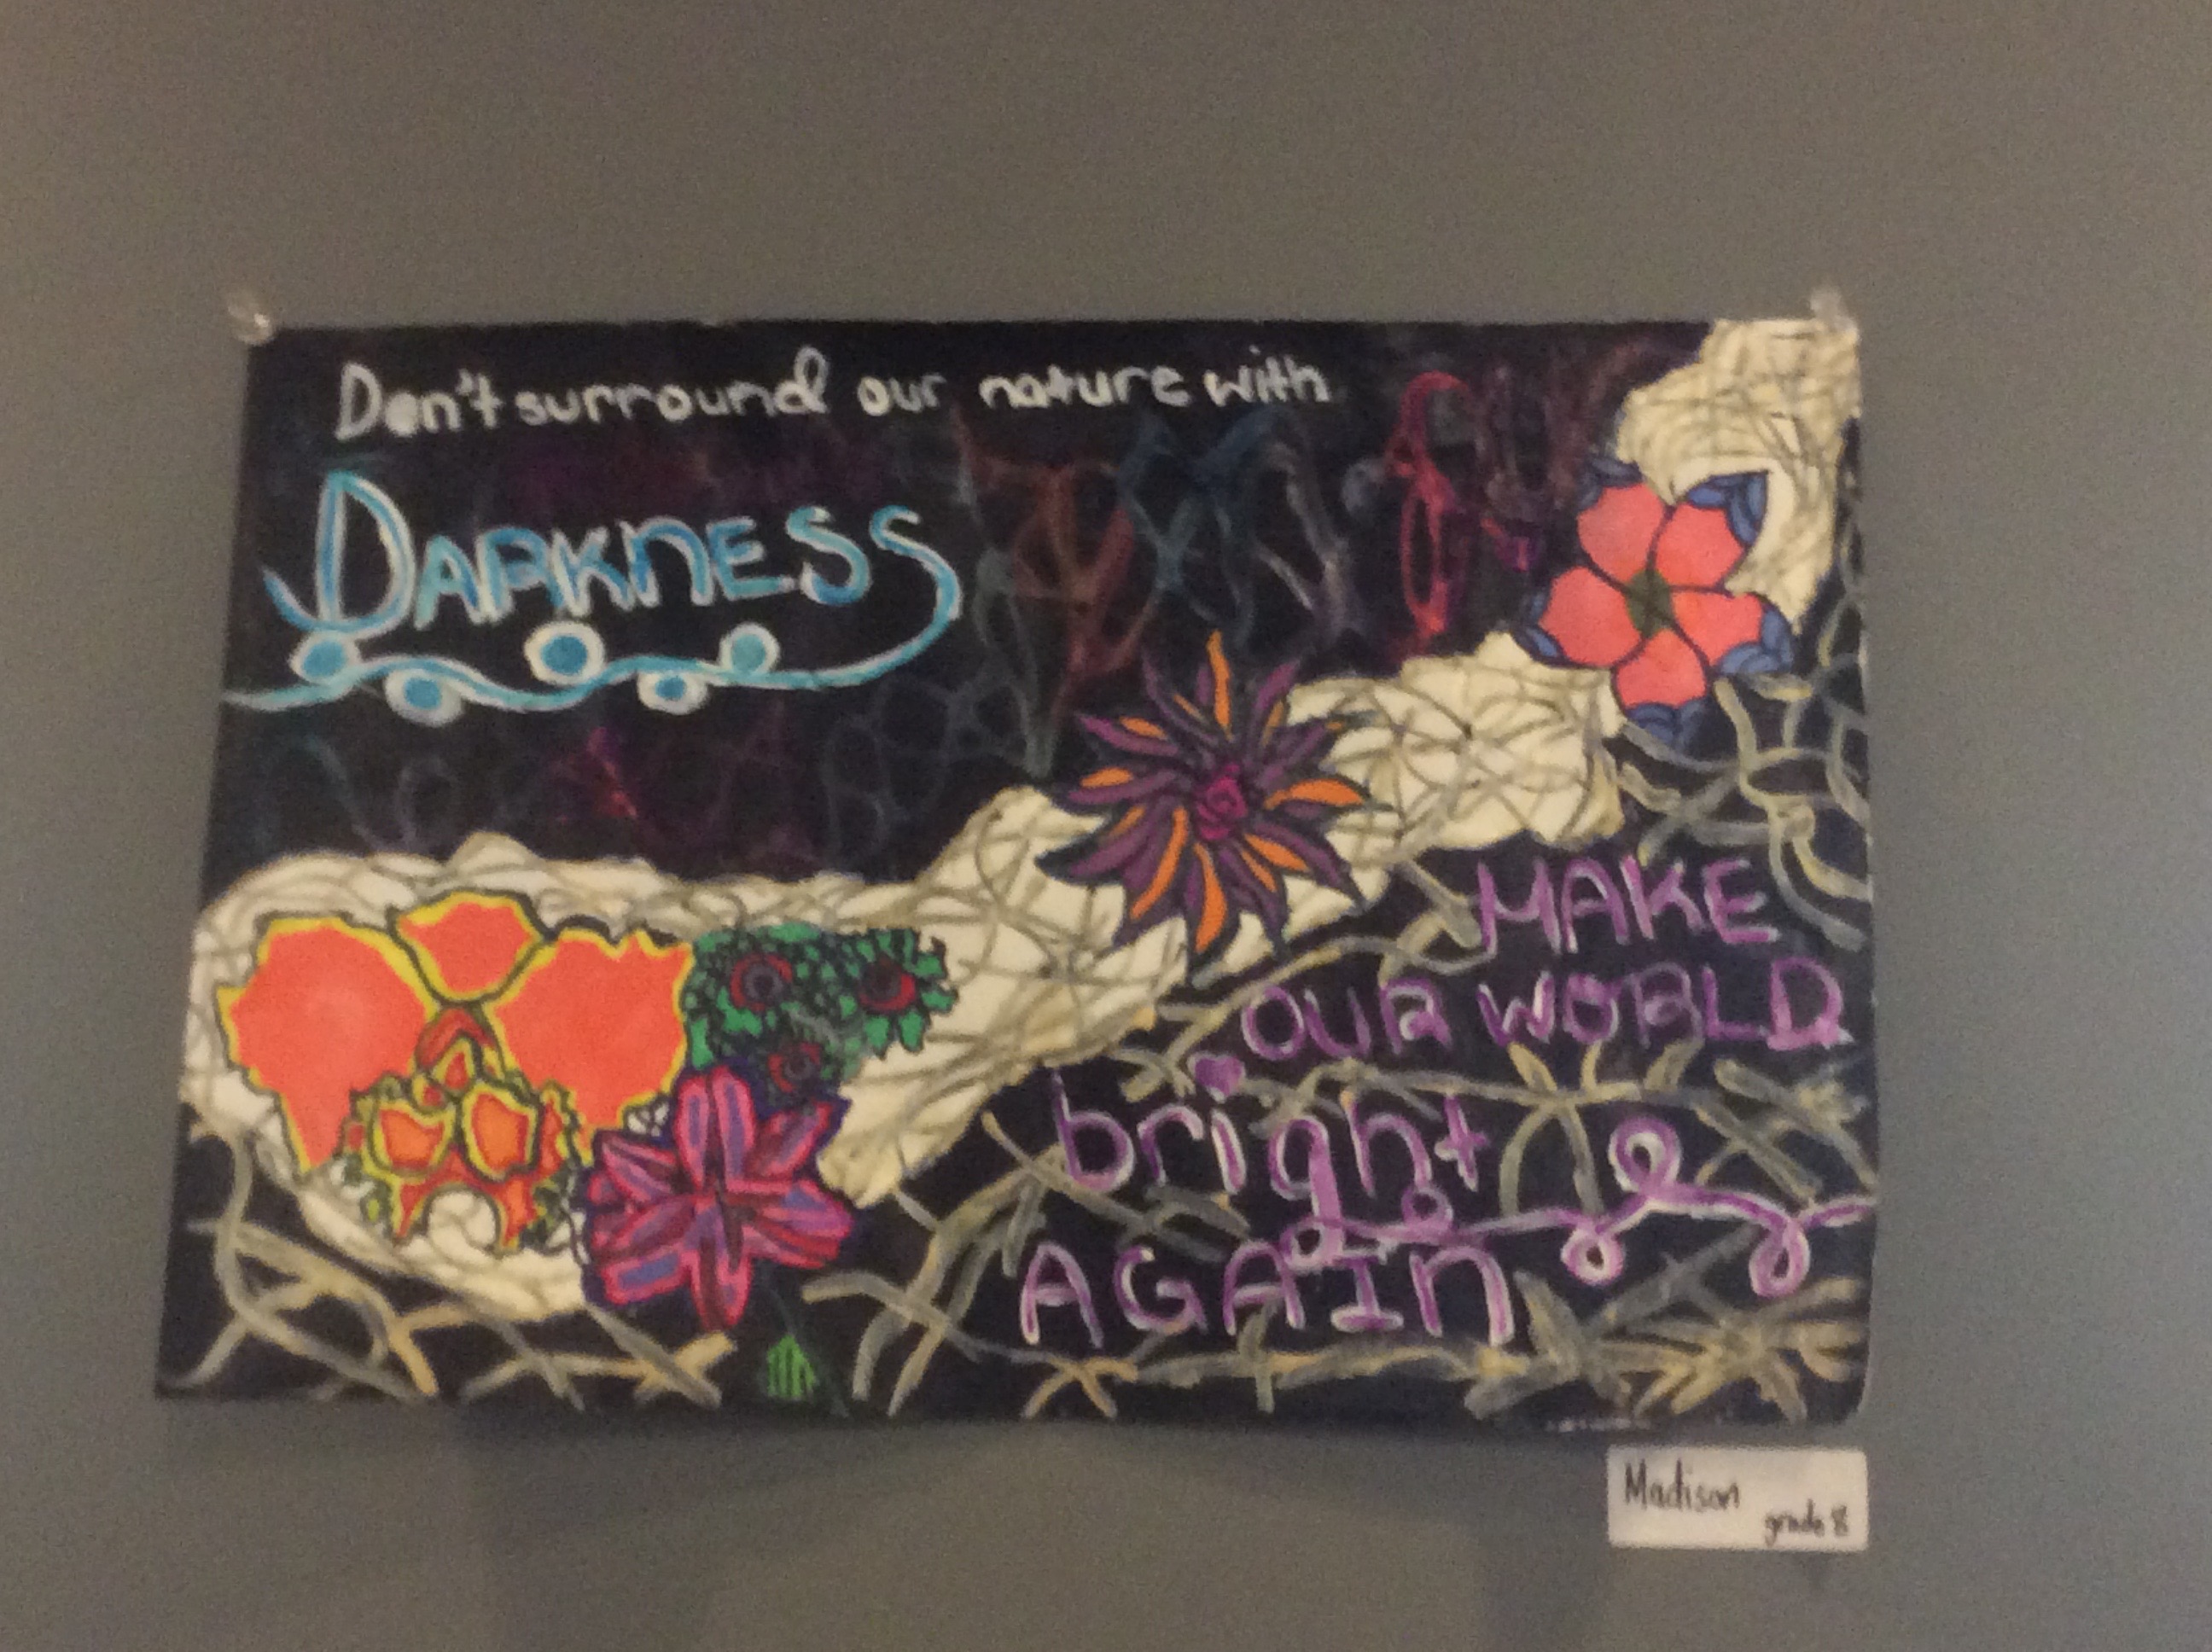 Don't surround our nature with
DARKNESS
MAKE
OUR WORLD
bright
AGAIN
Madison
grade 8